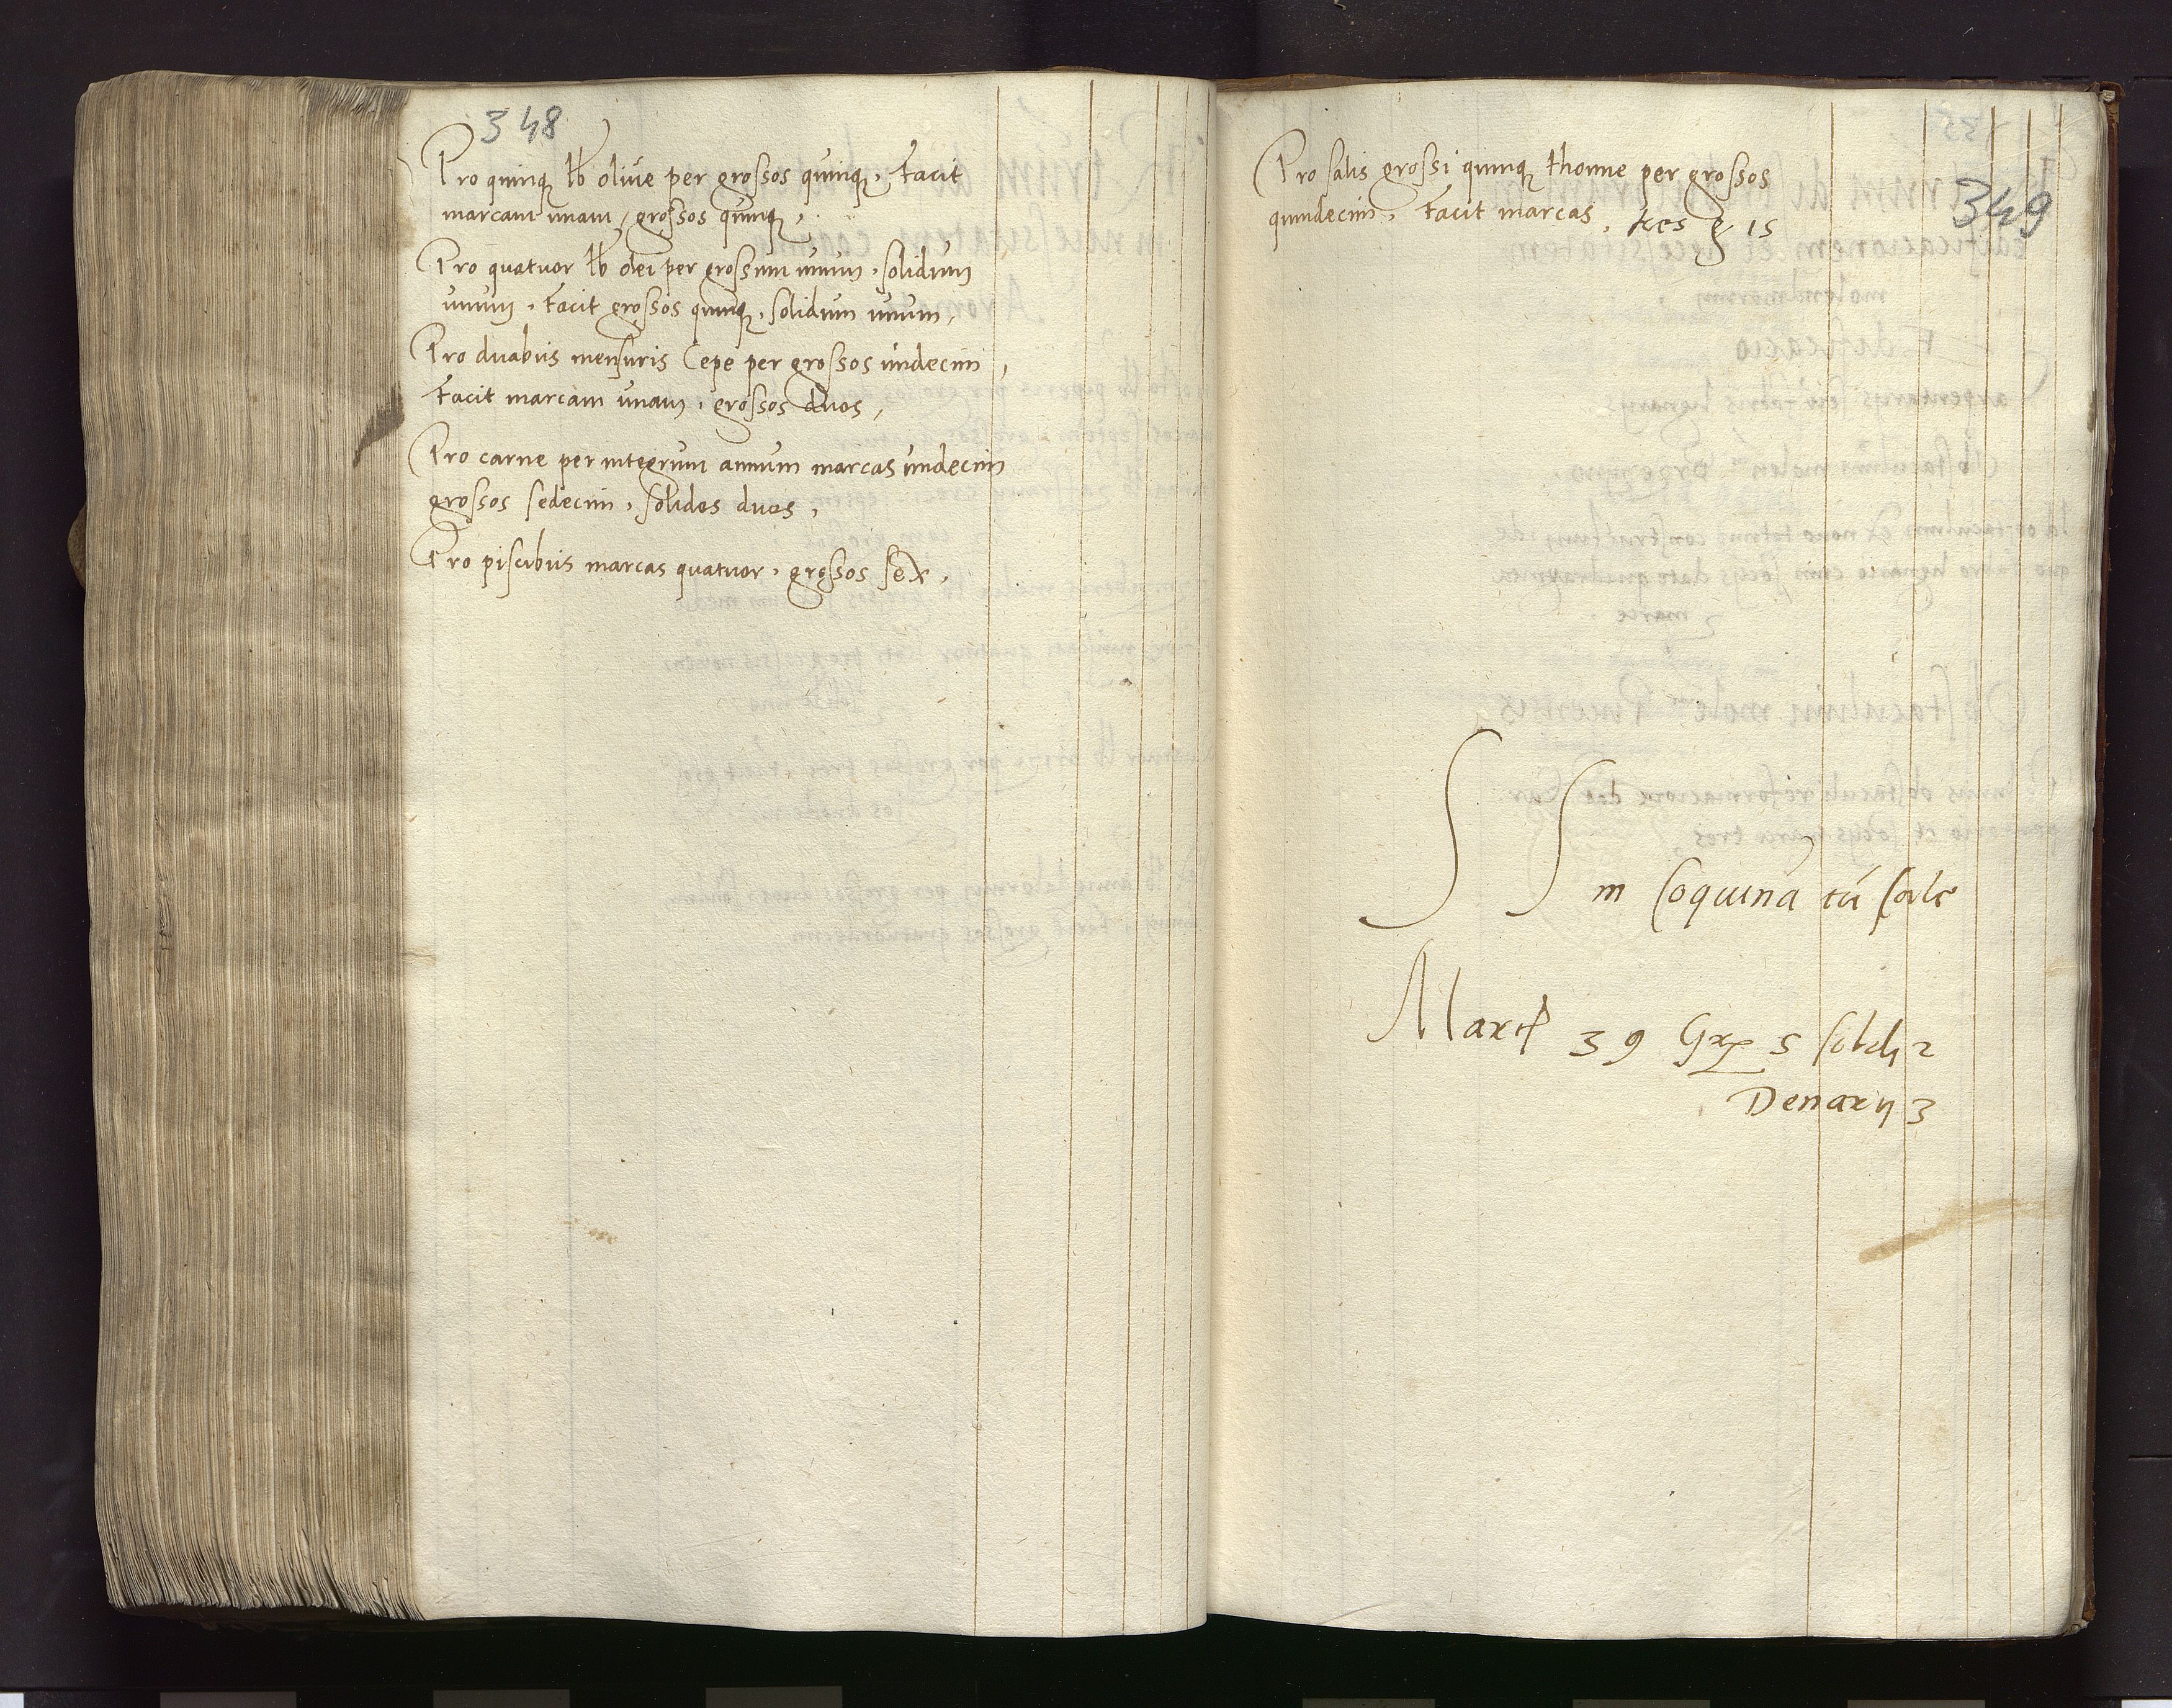 348
Pro quinq₃ lb olive per grossos quinq₃, facit
marcam unam, grossos quinq₃,
Pro quatuor lb olei per grossum unum, solidum
unum, facit grossos quinq₃, solidum unum,
Pro duabus mensuris Cepe per grossos undecim,
facit marcam unam, grossos duos,
Pro carne per integrum annum marcas undecim
grossos sedecim, solidos duos,
Pro piscibus marcas quatuor, grossos sex,
349
Pro salis grossi quinq₃ thonne per grossos
quindecim, facit marcas, tres g 15
S S in Coquina
Marcis 39 Gr 5 solidi 2
Denarij 3